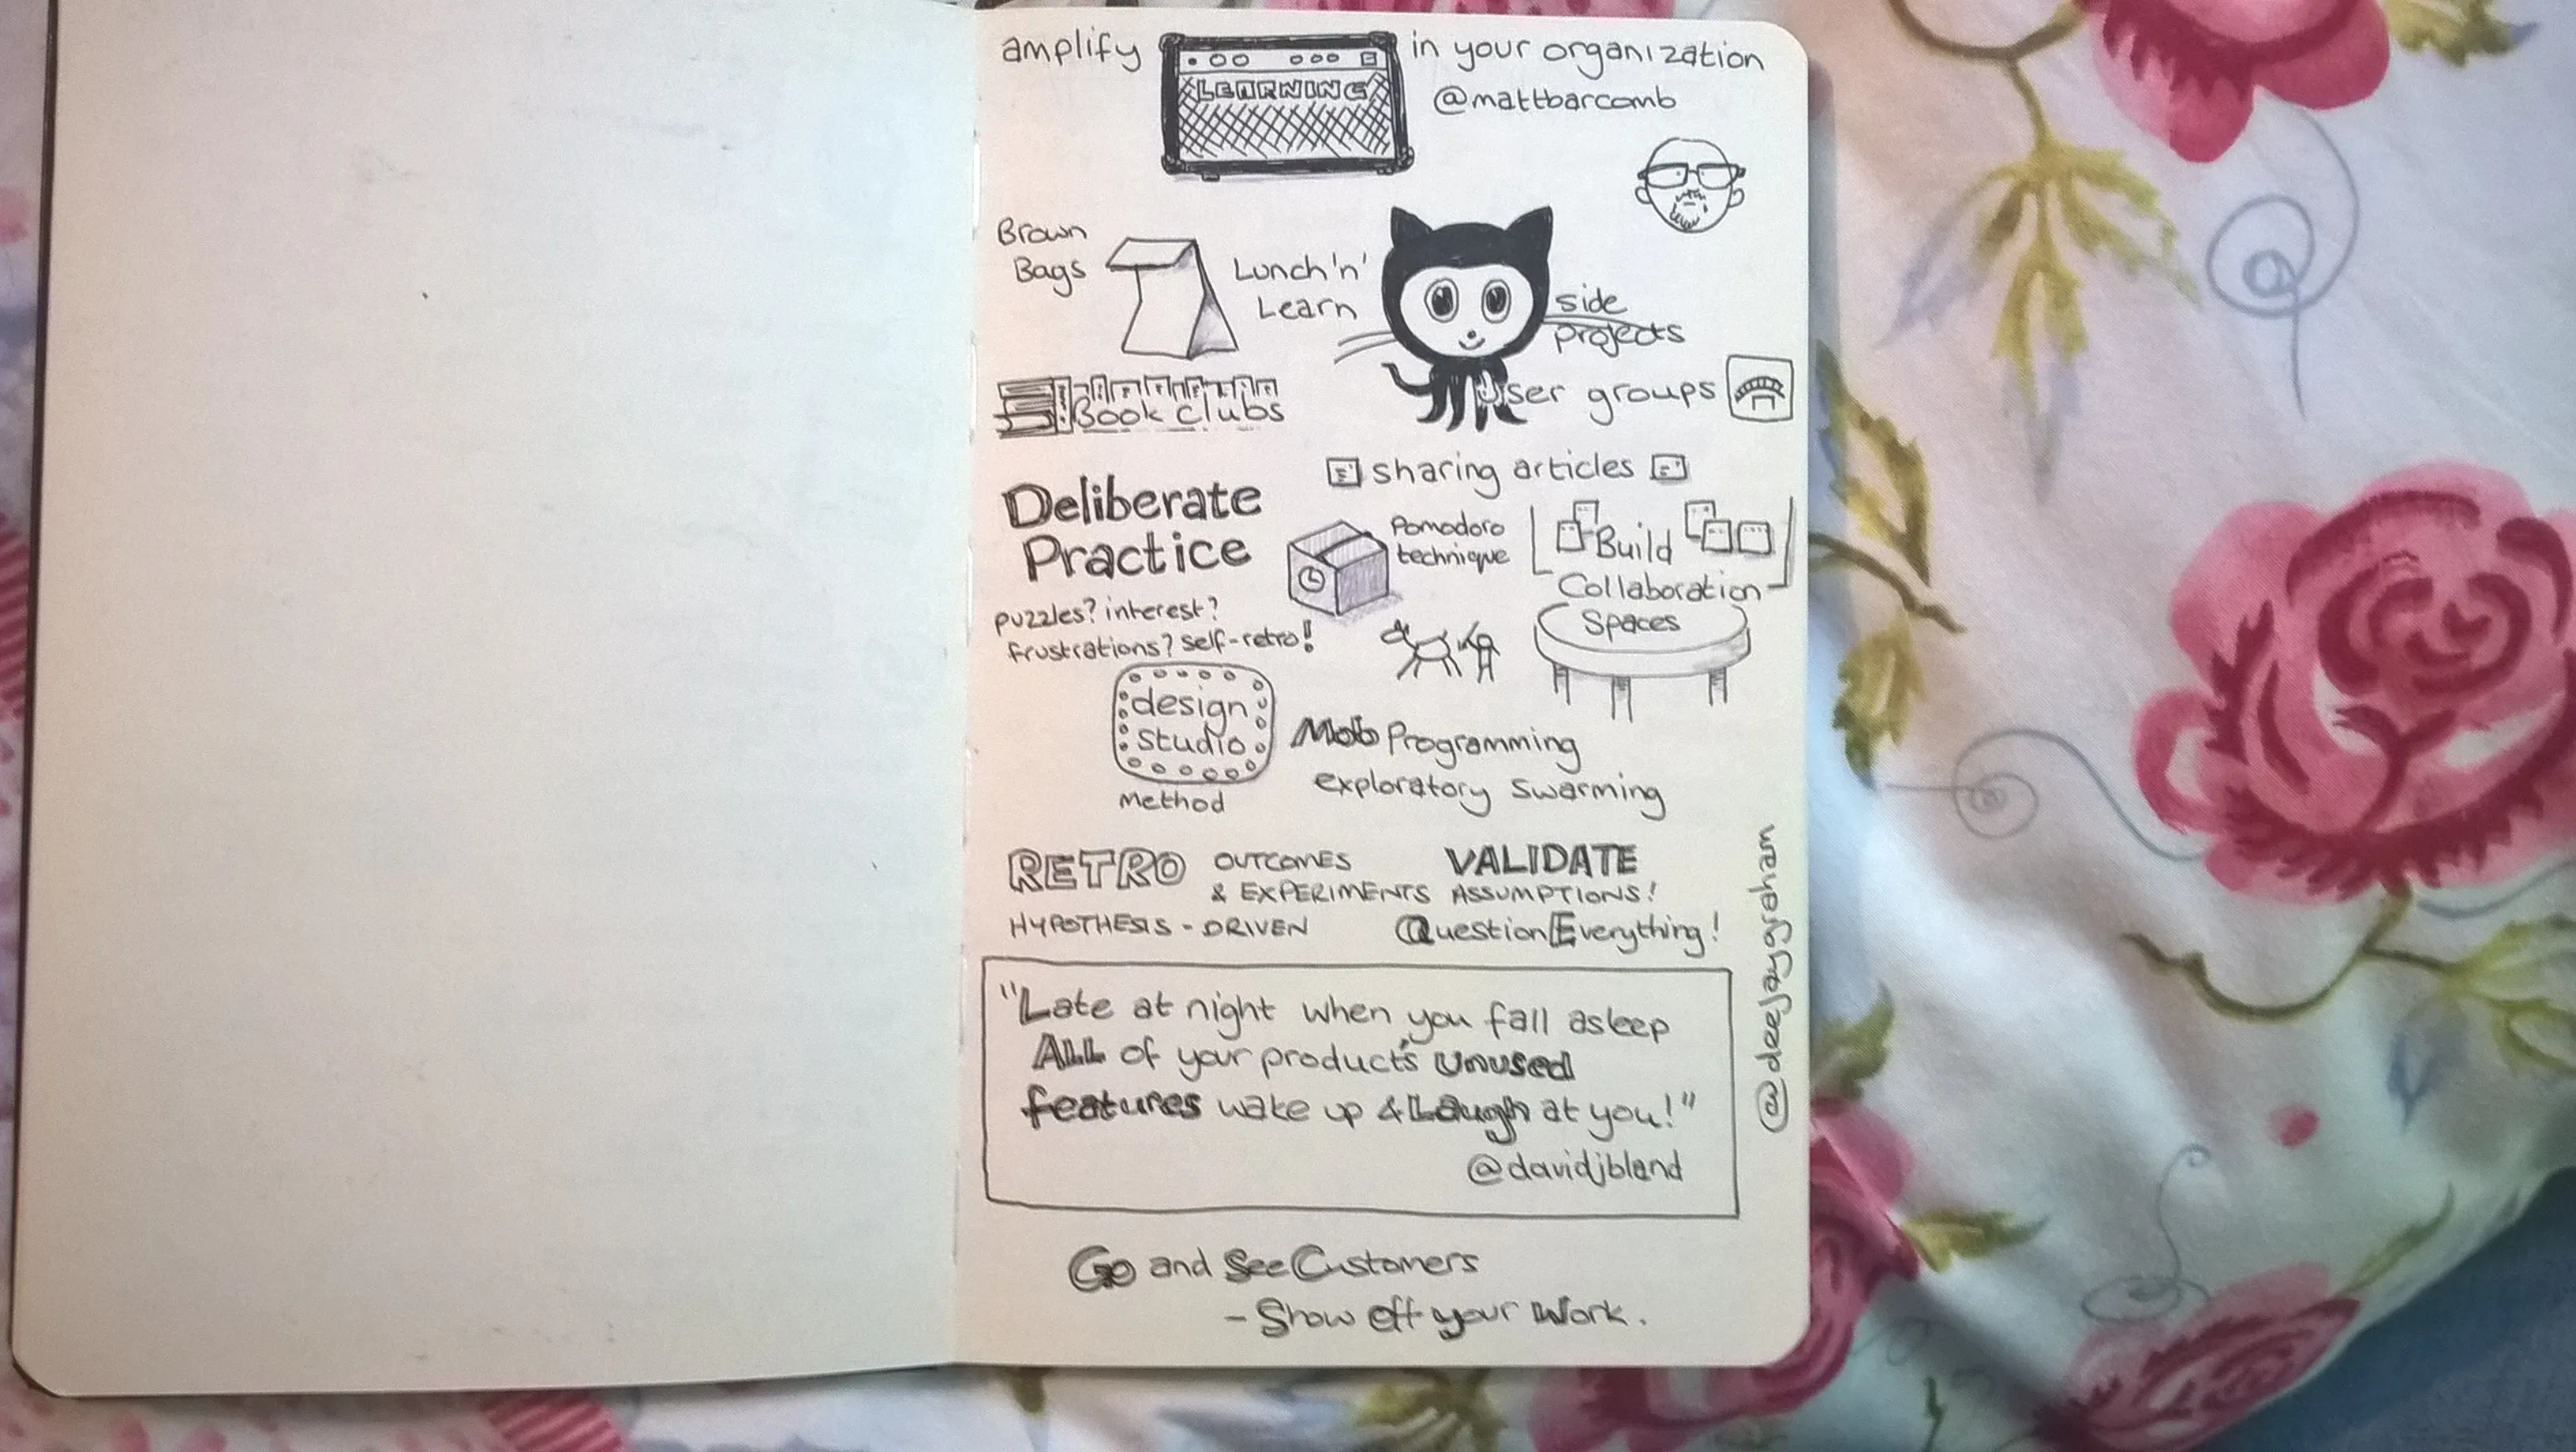 amplify LEARNING in your organization
@mattbarcomb
Brown
Bags
Lunch 'n'
Learn
side
projects
Book clubs
User groups
sharing articles
Deliberate
Practice
Pomodoro
technique
Build
Collaboration
Spaces
puzzles? interest?
frustrations? self-retro!
design
studio
Method
Mob Programming
exploratory swarming
RETRO OUTCOMES
& EXPERIMENTS
HYPOTHESIS - DRIVEN
VALIDATE
ASSUMPTIONS!
Question Everything!
"Late at night when you fall asleep
ALL of your product's unused
features wake up & Laugh at you!"
@davidjbland
@deejaygraham
Go and See Customers
- Show off your Work.